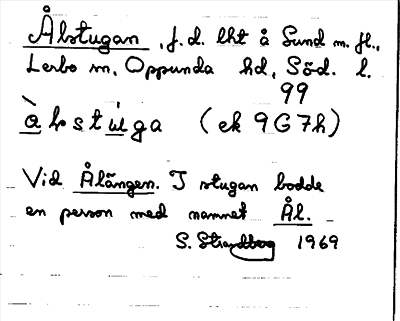 Ålstugan, f.d. lht å Sund m. fl.,
Lerbo sn, Oppunda hd, Söd. l.
99
à l s t ù g a (ek 9G 7h)
Vid Ålängen. I stugan bodde
en person med namnet Ål.
S. Strandberg 1969